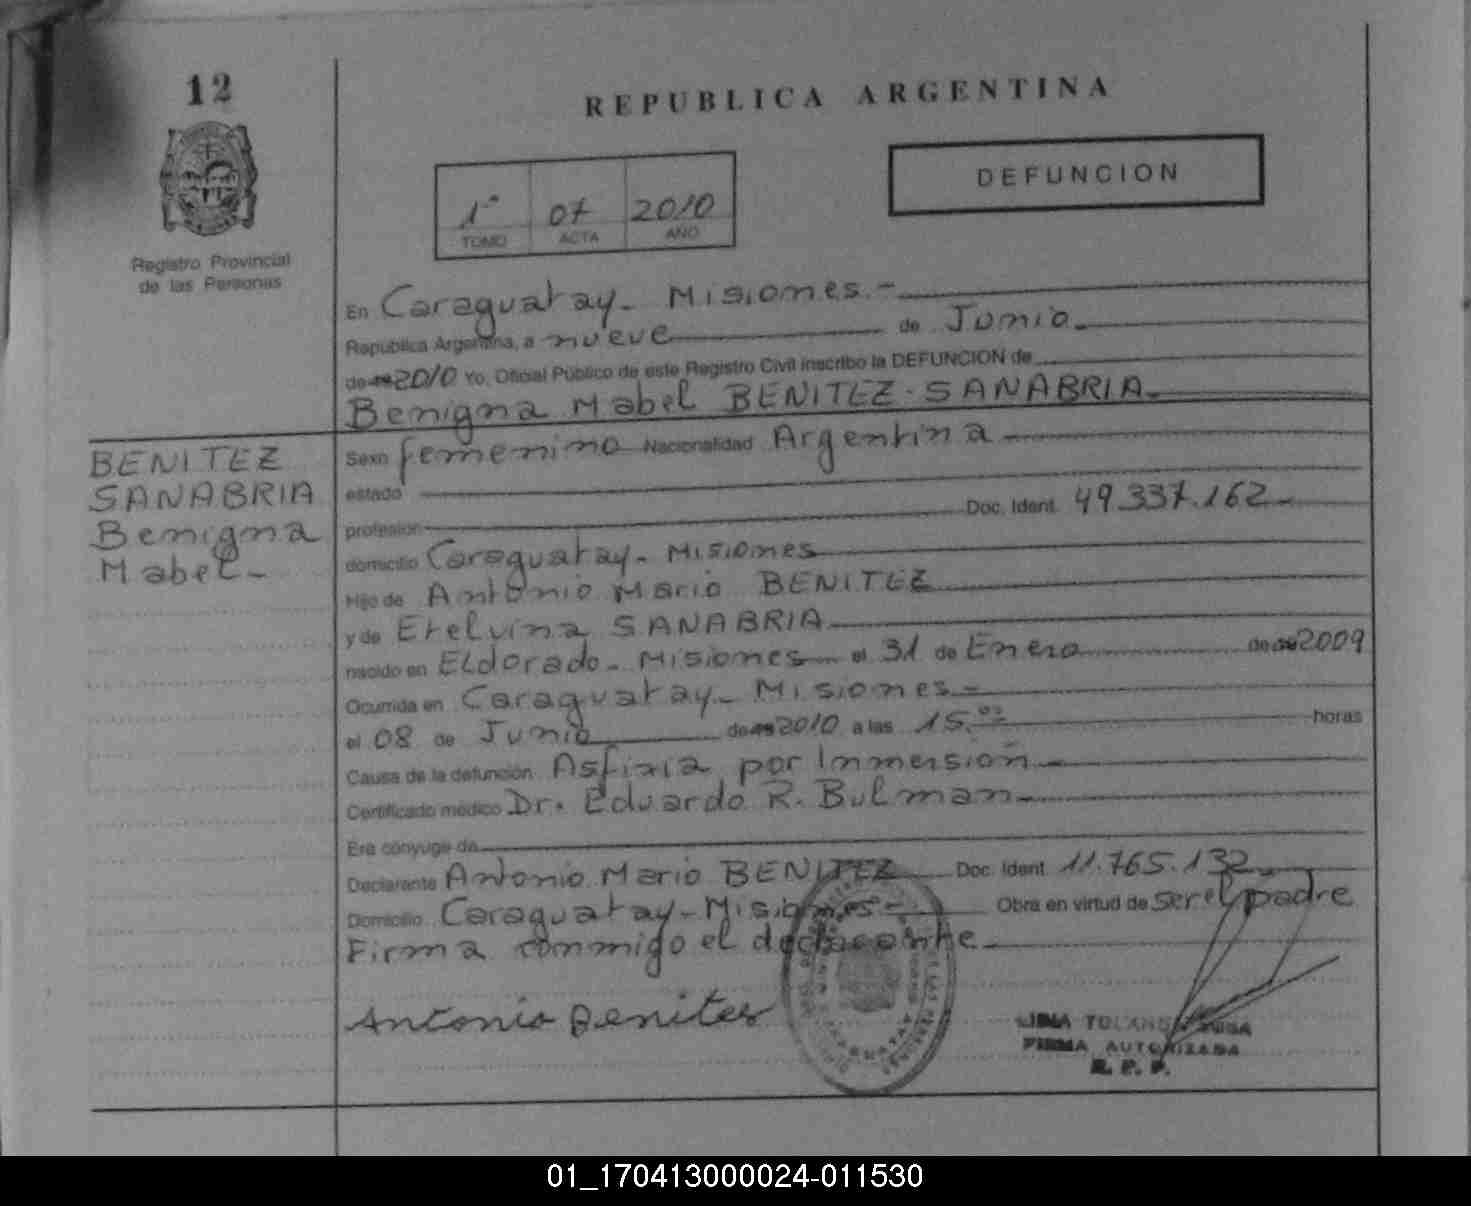 12
REPUBLICA ARGENTINA
DEFUNCION
1° 07 2010
TOMO ACTA AÑO
Registro Provincial
de las Personas
En Caraguatay - Misiones.-
República Argentina, a nueve de Junio.
de 2010 Yo, Oficial Público de este Registro Civil inscribo la DEFUNCION de
Benigna Mabel BENITEZ SANABRIA
BENITEZ
SANABRIA
Benigna
Mabel-
Sexo femenino Nacionalidad Argentina
estado
profesión Doc. Ident. 49.337.162
domicilio Caraguatay - Misiones
Hijo de Antonio Mario BENITEZ
y de Etelvina SANABRIA
nacido en Eldorado - Misiones el 31 de Enero de 2009
Ocurrida en Caraguatay - Misiones-
el 08 de Junio de 2010 a las 15.00 horas
Causa de la defunción Asfixia por Inmersión
Certificado médico Dr. Eduardo R. Bulman
Era conyuge de
Declarante Antonio Mario BENITEZ Doc. Ident. 11.765.132
Domicilio Caraguatay - Misiones- Obra en virtud de ser el padre
Firma conmigo el declarante
Antonio Benites
FIRMA AUTORIZADA
R. P. P.
01_170413000024-011530